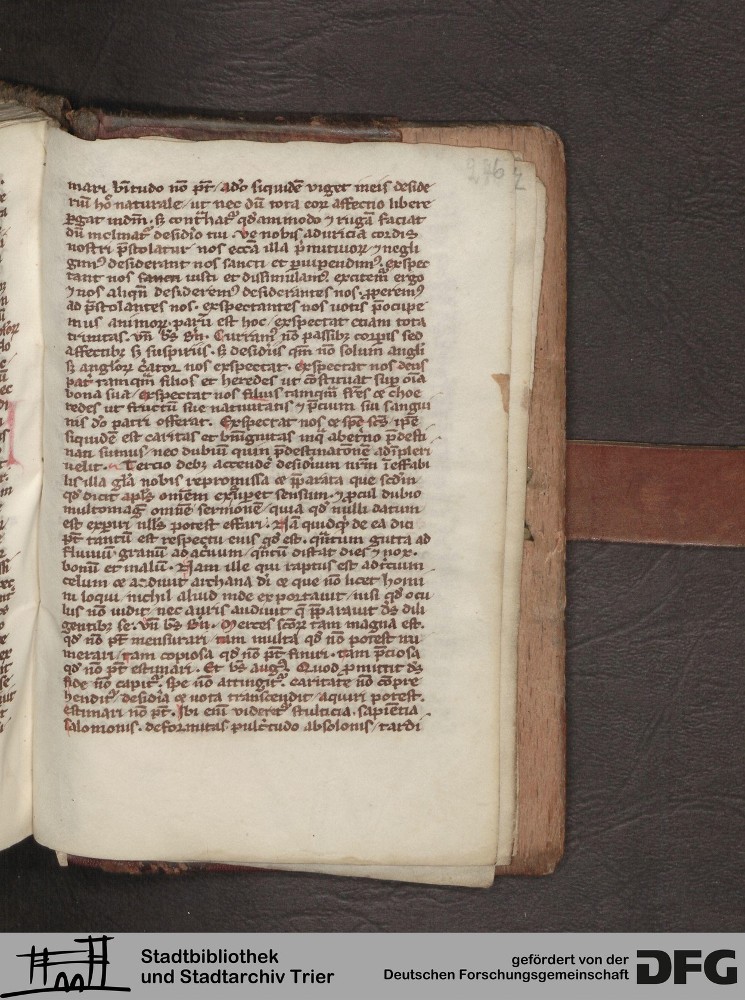 246
mari beatitudo nō pt̄. ado siquidē viget in eis deside
riū hoc naturale, ut nec dū tota eor affectio libere
ꝑgat in dm̄. sꝫ contrahat qđammodo ⁊ rugā faciat
dū inclinat desidio sui. Ve nobis a duricia cordis
nostri p̄stolatur nos ecc̄a illa p̄mitiuoꝝ ⁊ negli
gimꝰ desiderant nos sancti et ꝑuipendimꝰ. exspec
tant nos iusti et dissimulamꝰ excitemꝰ ergo
⁊ nos aliqn̄ desideremꝰ desiderantes nos. ꝓperemꝰ
ad p̄stolantes nos. exspectantes nos uotis p̄ocupe
mus animoꝝ. parū est hoc exspectat etiam tota
trinitas. vn̄ bs̄ bn̄. Curramꝰ nō passibꝫ corpis sed
affectibꝫ sꝫ suspiriis. sꝫ desidiis qm̄ nō solum angli
sꝫ angloꝝ c̄ator nos exspectat. exspectat nos deus
pat̄ tamqm̄ filios et heredes ut cōstituat sup oīa
bona sua. exspectat nos filius tamqm̄ fr̄es ⁊ cohe
redes ut fructū sue natiuitatis ⁊ p̄cium sui sangui
nis do patri offerat. Exspectat nos ⁊ spc̄ sc̄s ipē
siquidē est caritas et bn̄ignitas in q̄ ab et̄no p̄desti
nati sumus. nec dubiū quin p̄destinationē adīpleri
uelit. Tercio debꝫ accendē desidium nr̄m ineffabi
lis illa gl̄a nobis repromissa ⁊ p̄parata que scd̄m
qđ dicit apls̄ omēm exuꝑet sensum. ⁊ ꝓcul dubio
multomaḡ omnē sermonē. quia qđ nulli datum
est expiri nllꝰ potest effari. Nā quidqꝫ de ea dici
pt̄ tantū est respectu eius qđ est. qn̄tum gutta ad
fluuiū. granū ad aceruum. qn̄tū distat dies ⁊ nox.
bonū et malū. Nam ille qui raptus est ad tercium
celum ⁊ audiuit archana di ⁊ que nō licet homi
ni loqui. nichil aliud inde exportauit. nisi qđ ocu
lus nō uidit. nec auris audiuit q̄ p̄parauit ds̄ dili
gentibꝫ se. vn̄ bs̄ bn̄. Merces sc̄oꝝ tam magna est.
qđ nō pt̄ mensurari tam multa qđ nō potest nu
merari. tam copiosa qđ nō pt̄ finiri. tam p̄ciosa
qđ nō pt̄ estimari. Et bs̄ augꝰ. Quod ꝓmittit ds̄
fide nō capitꝰ. spe nō attingitꝰ. caritate nō cōpre
henditꝰ desidia ⁊ uota transcendit. aquiri potest.
estimari nō pt̄. Ibi eni videretꝰ stulticia. sapiētia
salomonis. deformitas pulc̄tudo absolonis. tardi
Stadtbibliothek
und Stadtarchiv Trier
gefördert von der
Deutschen Forschungsgemeinschaft
DFG